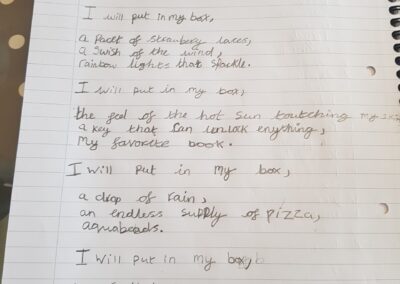 I will put in my box,
a pact of strawbery laces,
a swish of the wind,
rainbow lights that sparkle.
I will put in my box,
the feel of the hot sun toutching my
a key that can unlock enything,
My favorite book.
I will put in my box,
a drop of rain,
an endless supply of pizza,
aquabeads.
I will put in my box,